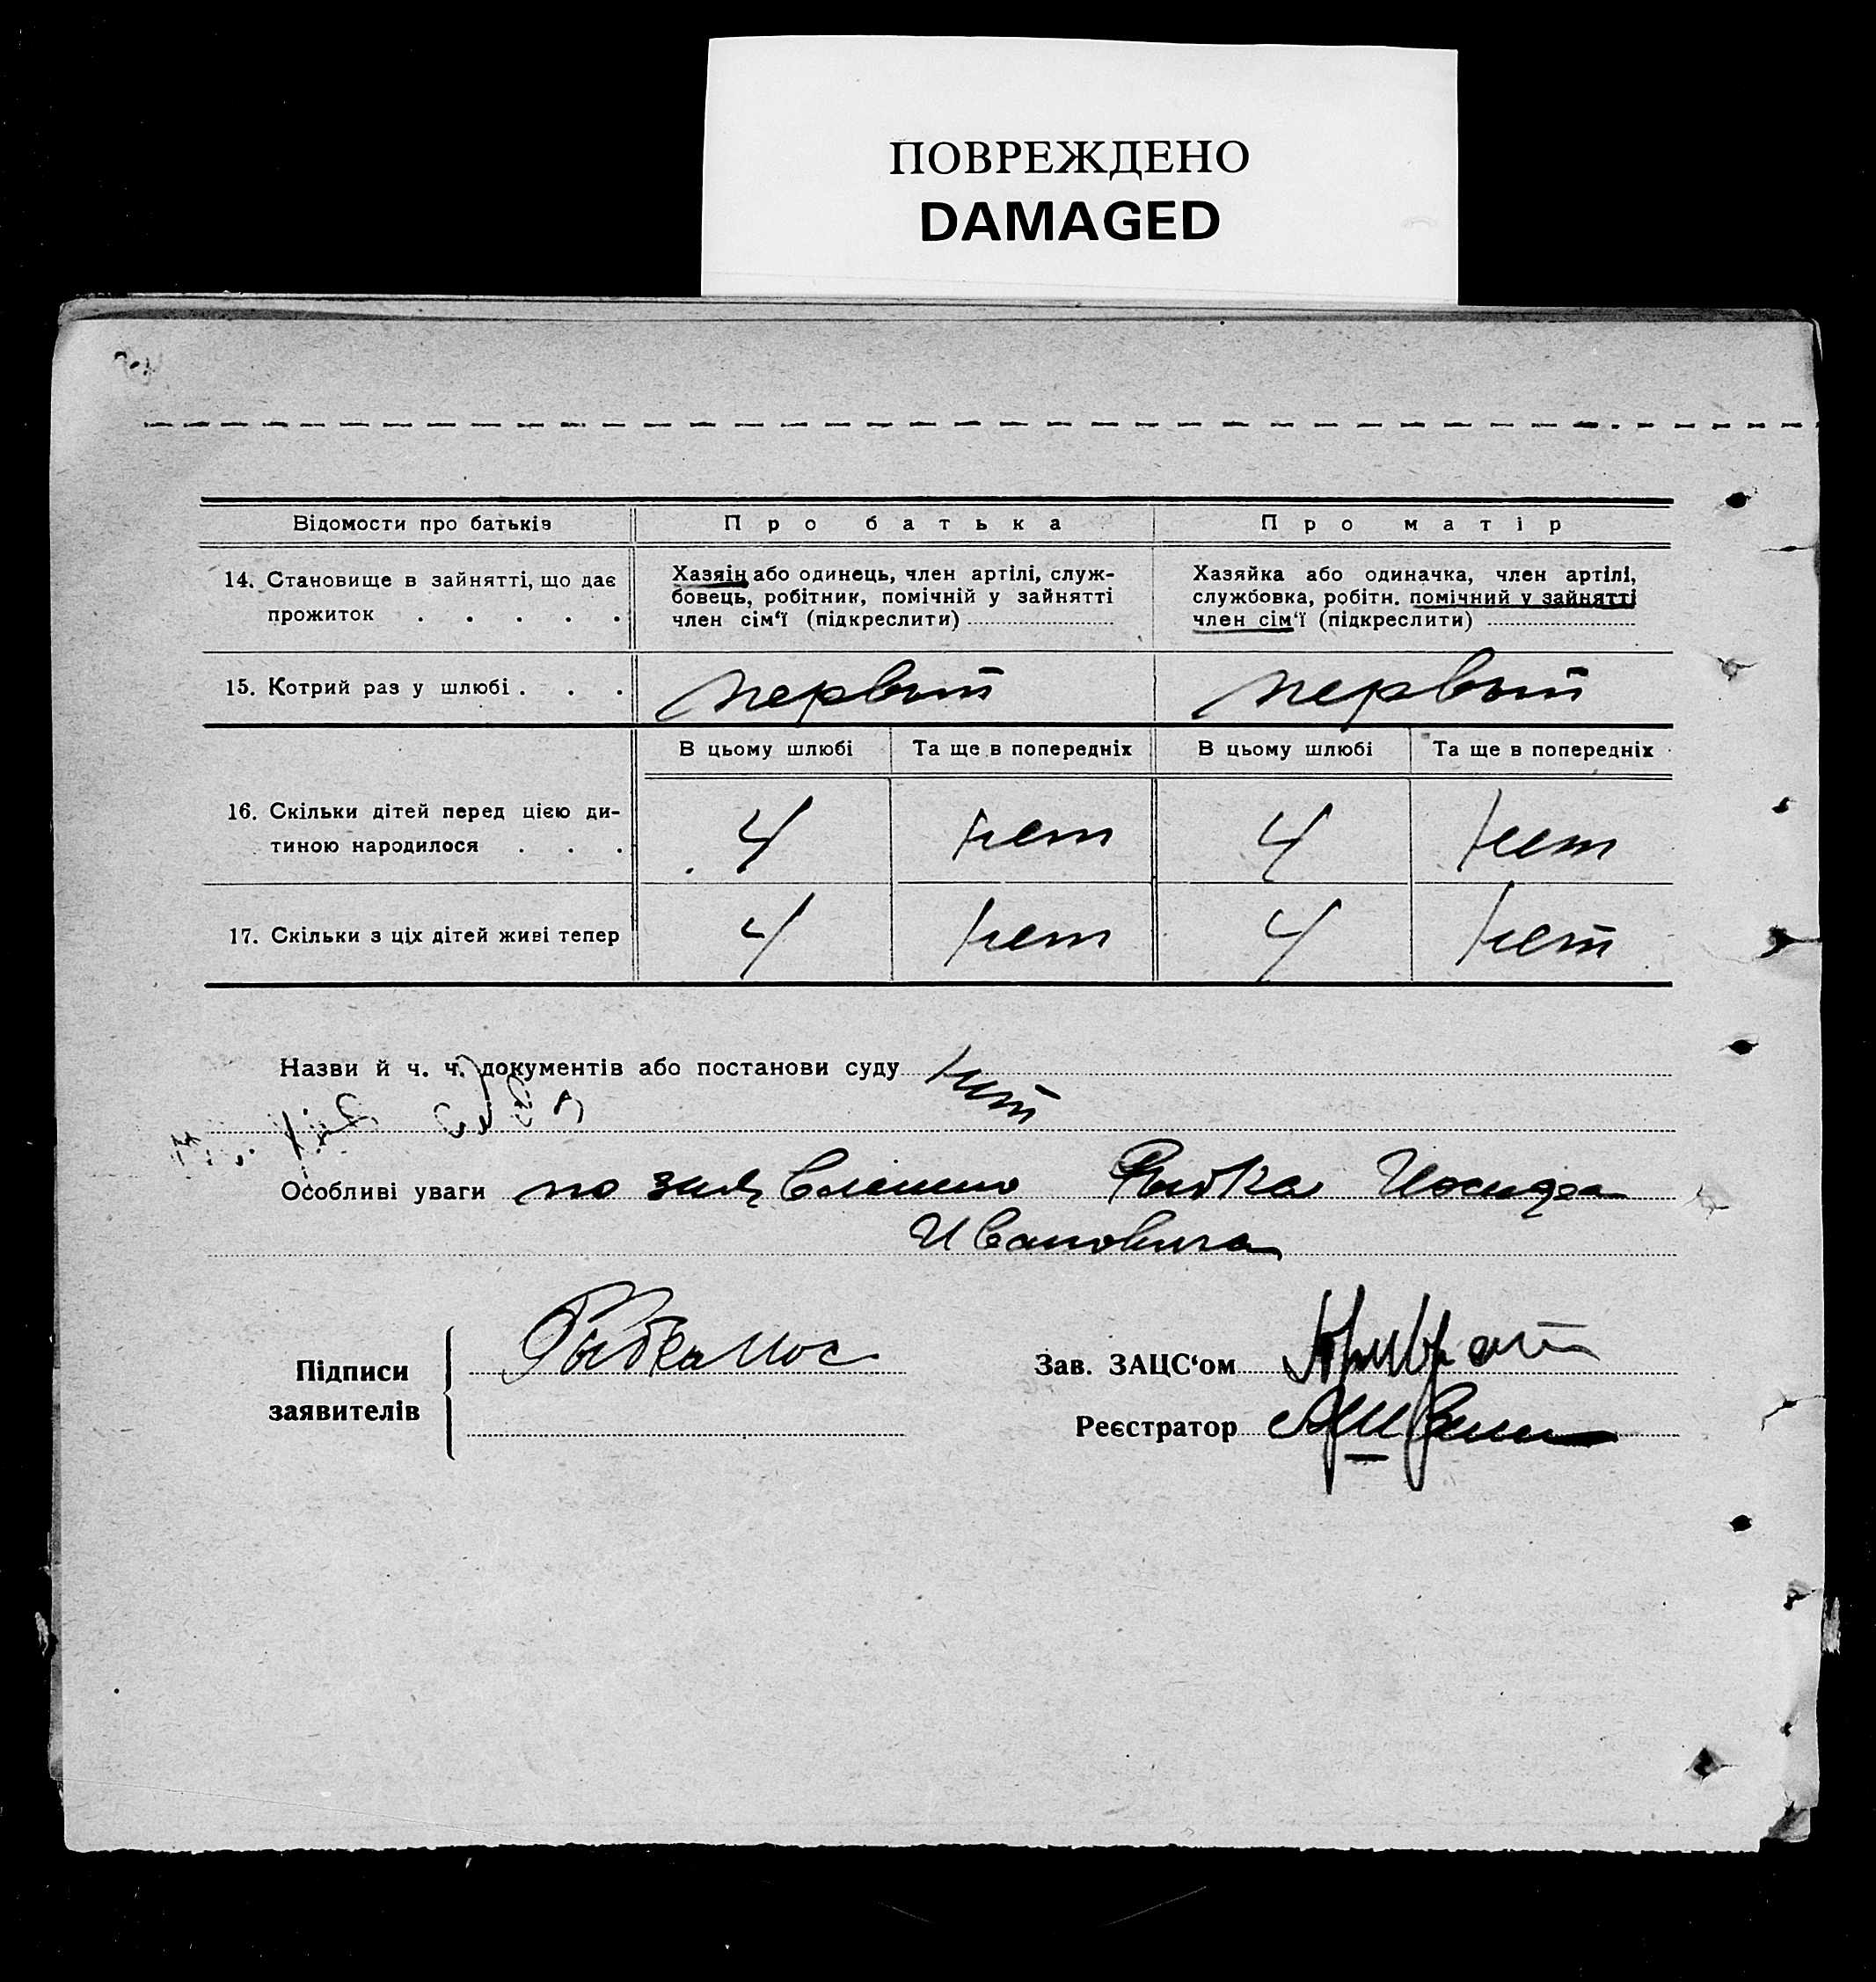 ПОВРЕЖДЕНО
DAMAGED
Відомости про батьків
Про батька
Про матір
14. Становище в зайнятті, що дає
прожиток . . . . .
Хазяін або одинець, член артілі, служ-
бовець, робітник, помічній у зайнятті
член сім‘ї (підкреслити)
Хазяйка або одиначка, член артілі,
службовка, робітн. помічний у зайнятті
член сім‘ї (підкреслити)
15. Котрий раз у шлюбі . . .
первый
первый
В цьому шлюбі
Та ще в попередніх
В цьому шлюбі
Та ще в попередніх
16. Скільки дітей перед цією ди-
тиною народилося . . .
4
нет
4
нет
17. Скільки з ціх дітей живі тепер
4
нет
4
нет
Назви й ч. ч. документів або постанови суду нет
Особливі уваги по заявлению Рыбка
Ивановича
Підписи
заявителів
Рыбка Иос
Зав. ЗАЦС‘ом
Реєстратор